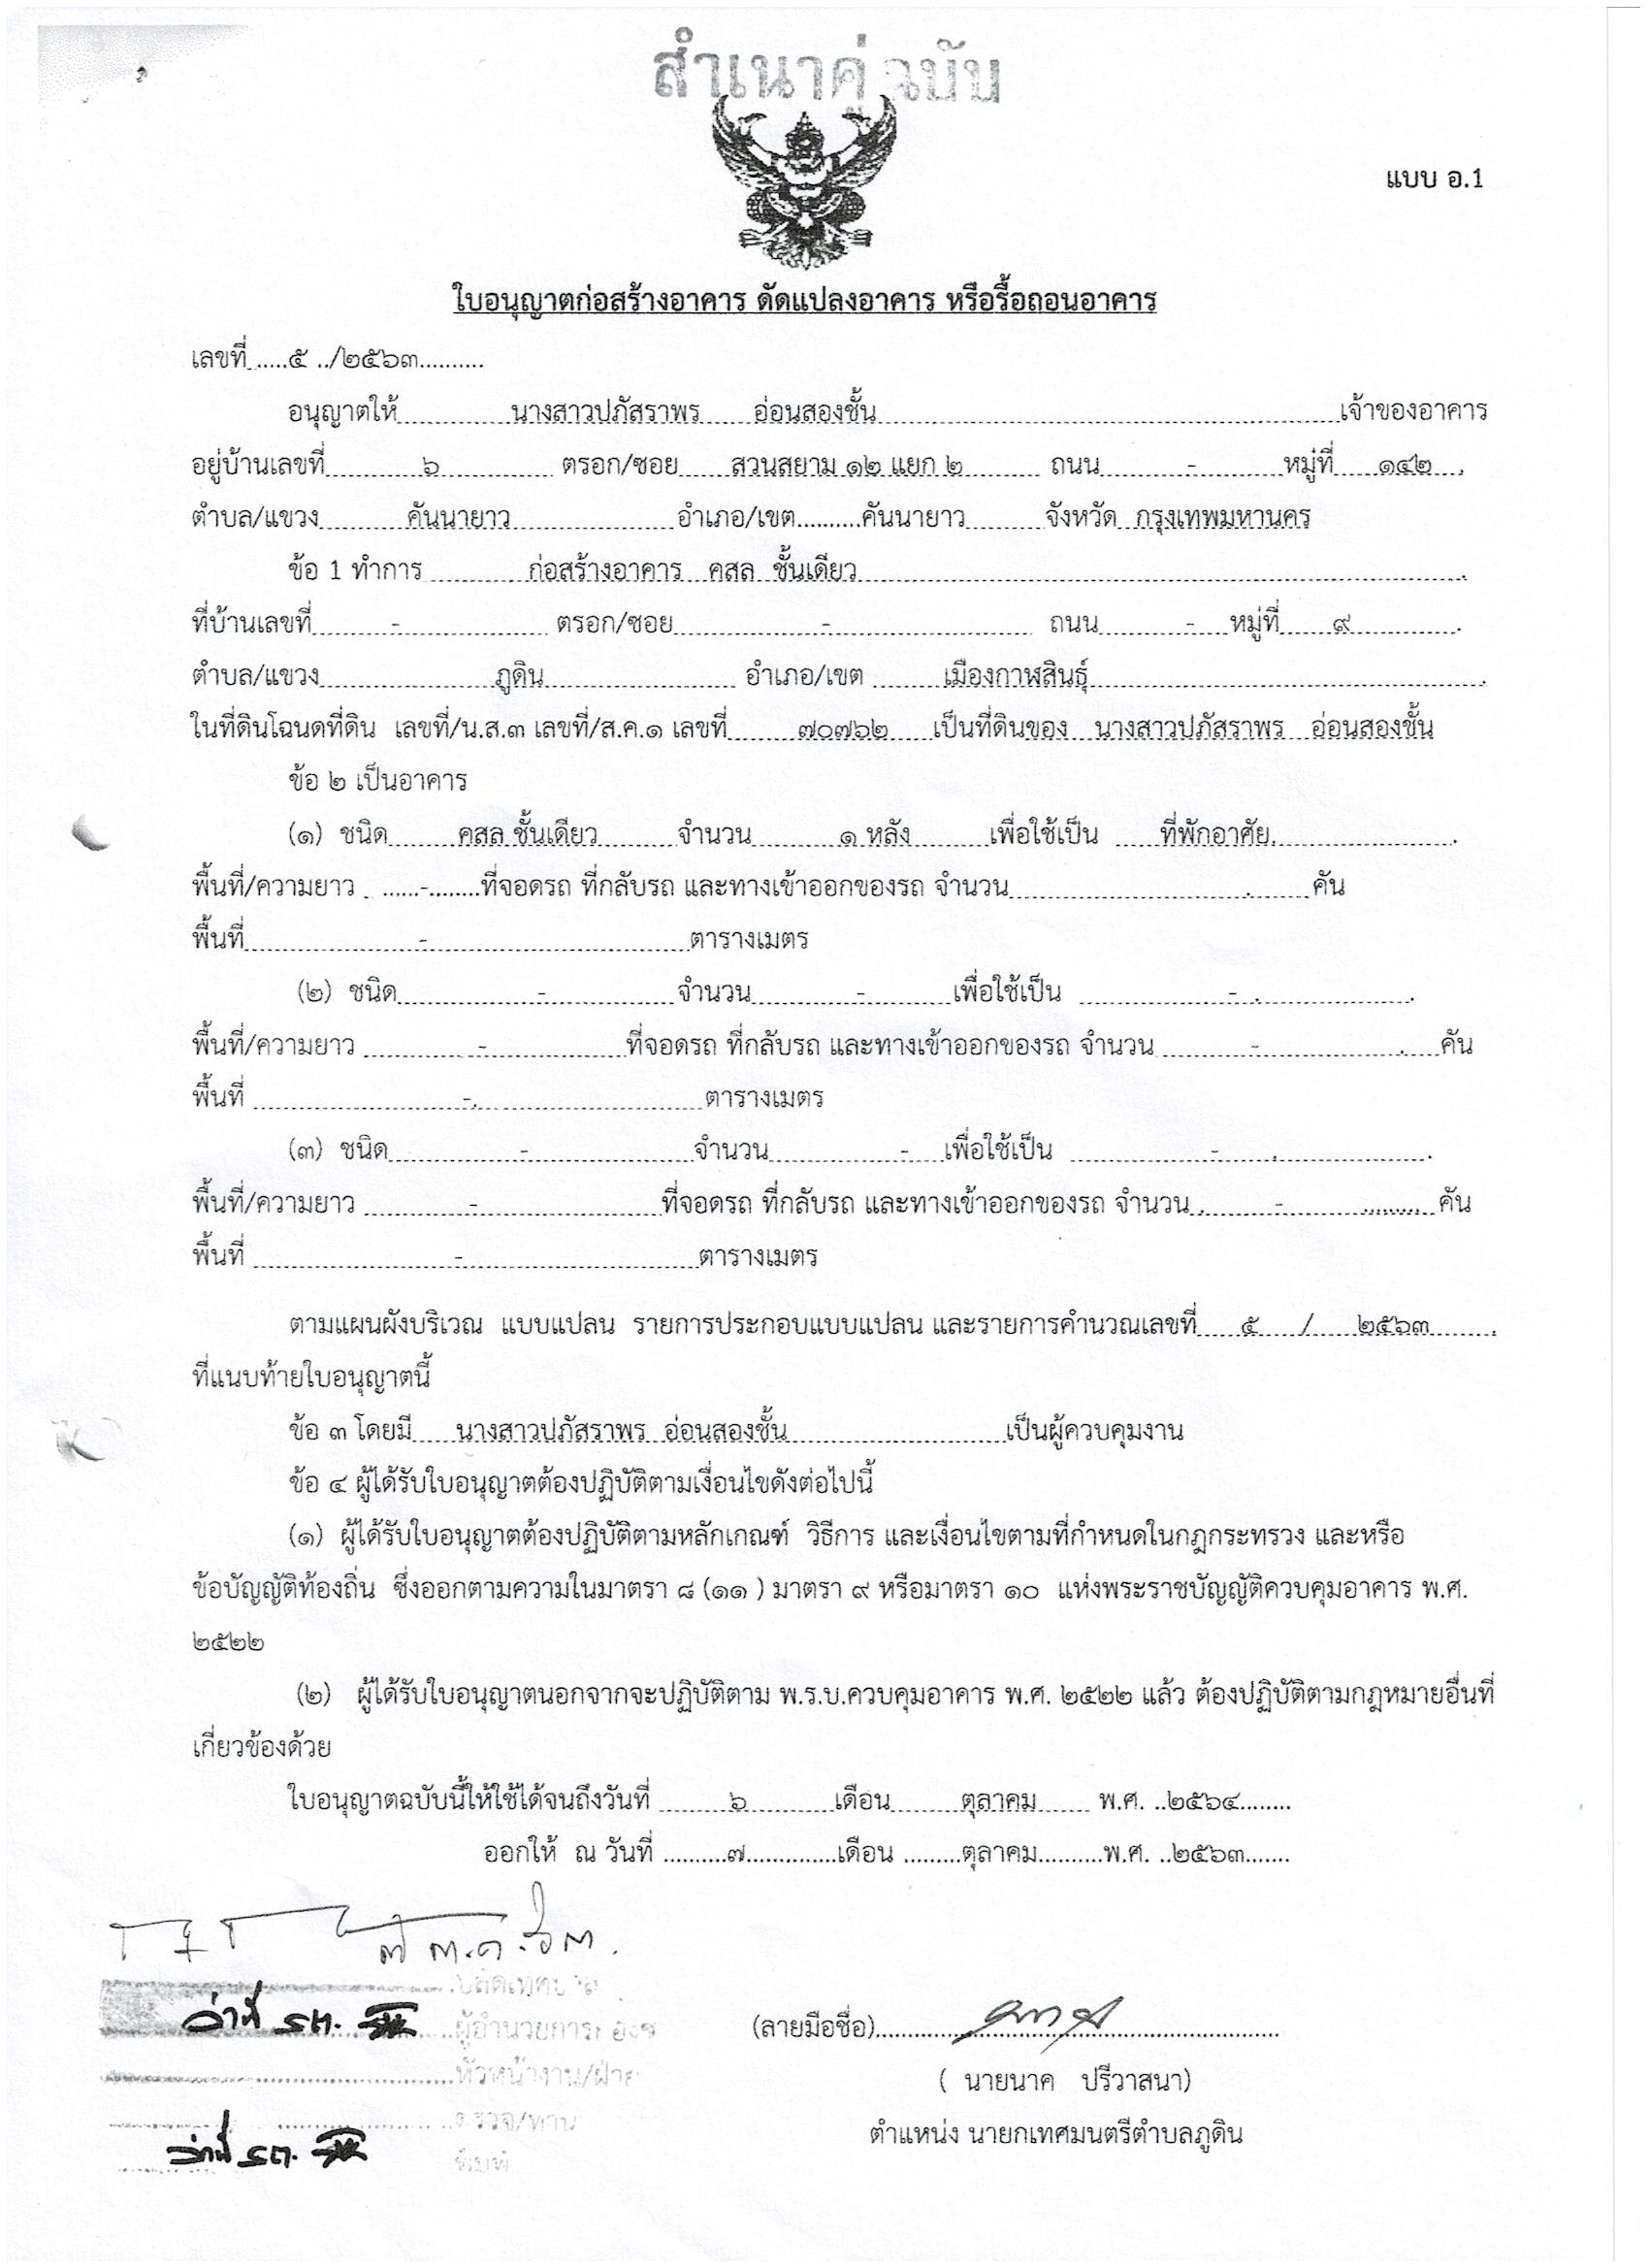 สำเนาคู่ฉบับ
แบบ อ.1
ใบอนุญาตก่อสร้างอาคาร ดัดแปลงอาคาร หรือรื้อถอนอาคาร
เลขที่ .....๕ ../๒๕๖๓..........
อนุญาตให้ นางสาวปภัสราพร อ่อนสองชั้น เจ้าของอาคาร
อยู่บ้านเลขที่ ๖ ตรอก/ซอย สวนสยาม ๑๒ แยก ๒ ถนน - หมู่ที่ ๑๔๒
ตำบล/แขวง คันนายาว อำเภอ/เขต คันนายาว จังหวัด กรุงเทพมหานคร
ข้อ 1 ทำการ ก่อสร้างอาคาร คสล ชั้นเดียว
ที่บ้านเลขที่ - ตรอก/ซอย - ถนน - หมู่ที่ ๙
ตำบล/แขวง ภูดิน อำเภอ/เขต เมืองกาฬสินธุ์
ในที่ดินโฉนดที่ดิน เลขที่/น.ส.๓ เลขที่/ส.ค.๑ เลขที่ ๗๐๗๖๒ เป็นที่ดินของ นางสาวปภัสราพร อ่อนสองชั้น
ข้อ ๒ เป็นอาคาร
(๑) ชนิด คสล ชั้นเดียว จำนวน ๑ หลัง เพื่อใช้เป็น ที่พักอาศัย
พื้นที่/ความยาว - ที่จอดรถ ที่กลับรถ และทางเข้าออกของรถ จำนวน คัน
พื้นที่ - ตารางเมตร
(๒) ชนิด - จำนวน - เพื่อใช้เป็น -
พื้นที่/ความยาว - ที่จอดรถ ที่กลับรถ และทางเข้าออกของรถ จำนวน - คัน
พื้นที่ - ตารางเมตร
(๓) ชนิด - จำนวน - เพื่อใช้เป็น -
พื้นที่/ความยาว - ที่จอดรถ ที่กลับรถ และทางเข้าออกของรถ จำนวน - คัน
พื้นที่ - ตารางเมตร
ตามแผนผังบริเวณ แบบแปลน รายการประกอบแบบแปลน และรายการคำนวณเลขที่ ๕ / ๒๕๖๓
ที่แนบท้ายใบอนุญาตนี้
ข้อ ๓ โดยมี นางสาวปภัสราพร อ่อนสองชั้น เป็นผู้ควบคุมงาน
ข้อ ๔ ผู้ได้รับใบอนุญาตต้องปฏิบัติตามเงื่อนไขดังต่อไปนี้
(๑) ผู้ได้รับใบอนุญาตต้องปฏิบัติตามหลักเกณฑ์ วิธีการ และเงื่อนไขตามที่กำหนดในกฎกระทรวง และหรือ
ข้อบัญญัติท้องถิ่น ซึ่งออกตามความในมาตรา ๘ (๑๑ ) มาตรา ๙ หรือมาตรา ๑๐ แห่งพระราชบัญญัติควบคุมอาคาร พ.ศ.
๒๕๒๒
(๒) ผู้ได้รับใบอนุญาตนอกจากจะปฏิบัติตาม พ.ร.บ.ควบคุมอาคาร พ.ศ. ๒๕๒๒ แล้ว ต้องปฏิบัติตามกฎหมายอื่นที่
เกี่ยวข้องด้วย
ใบอนุญาตฉบับนี้ให้ใช้ได้จนถึงวันที่ ๖ เดือน ตุลาคม พ.ศ. ๒๕๖๔
ออกให้ ณ วันที่ ๗ เดือน ตุลาคม พ.ศ. ๒๕๖๓
๗ ต.ค. ๖๓
ว่าที่ ร.ต.
(ลายมือชื่อ)
หัวหน้างาน/ฝ่าย
( นายนาค ปรีวาสนา)
ตรวจ/ทาน
ตำแหน่ง นายกเทศมนตรีตำบลภูดิน
ว่าที่ ร.ต.
พิมพ์